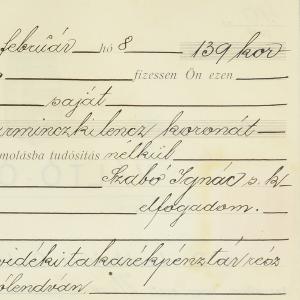 február hó 8 139 kor
fizessen Ön ezen
saját
rminczkilencz koronát
molásba tudósitás nélkül
Szabó Ignácz s. k.
elfogadom.
vidéki takarékpénztár rész
ólendván